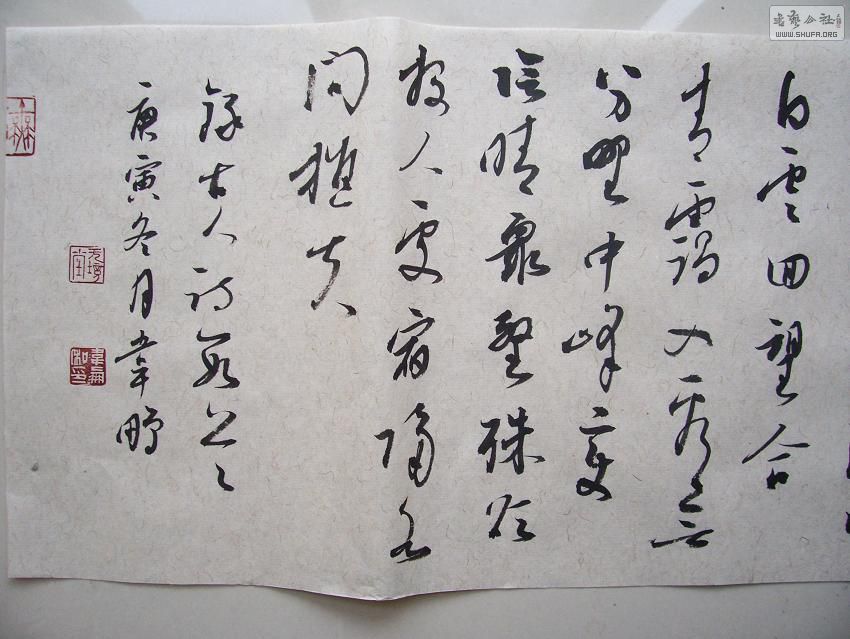 白雲回望合
青靄入看無
分野中峰變
陰晴衆壑殊欲
投人處宿隔水
問樵夫
錄古人詩
庚寅冬月韋鵬
書藝公社
WWW.SHUFA.ORG